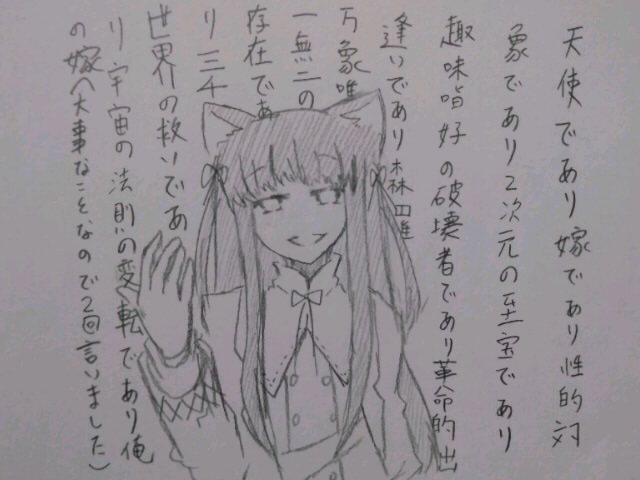 天使であり嫁であり性的対
象であり2次元の至宝であり
趣味嗜好の破壊者であり革命的出
逢いであり森羅
万象唯
一無二の
存在であ
り三千
世界の救いであ
り宇宙の法則の変転であり俺
の嫁(大事なことなので2回言いました)